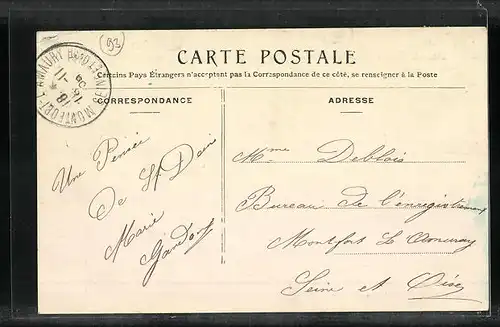 93
CARTE POSTALE
Certains Pays Étrangers n'acceptent pas la Correspondance de ce côté, se renseigner à la Poste
CORRESPONDANCE
ADRESSE
MONTFORT-L'AMAURY
Une Pensée
De St Deni
Marie
Mme Deblois
Bureau de l'enregistrement
Montfort L Amaury
Seine et Oise